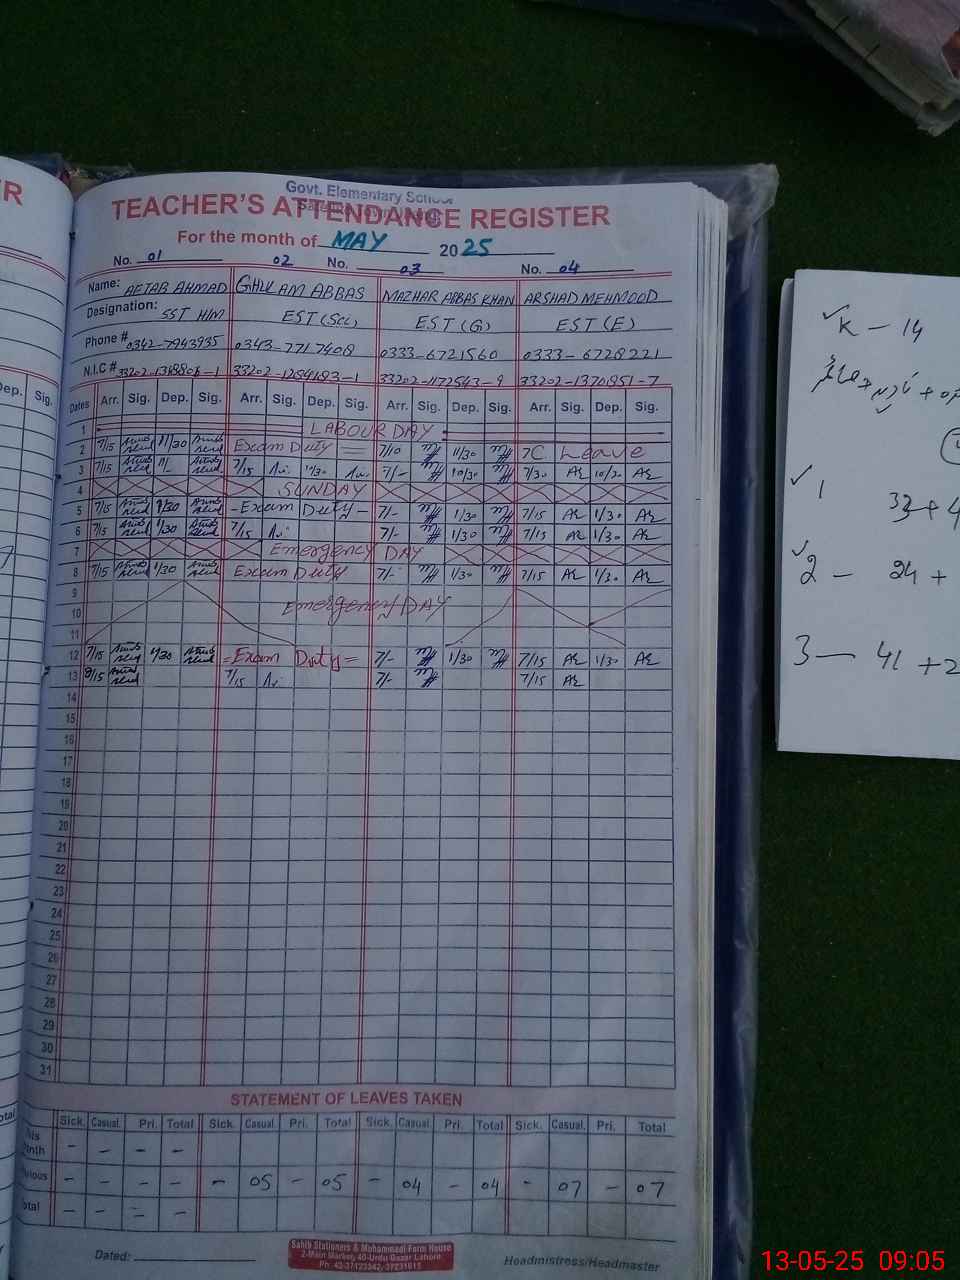 Govt. Elementary School
TEACHER'S ATTENDANCE REGISTER
For the month of MAY 2025
No. 01 02 No. 03 No. 04
Name: AFTAB AHMAD GHULAM ABBAS MAZHAR ABBAS KHAN ARSHAD MEHMOOD
Designation: SST H/M EST (Sci) EST (G) EST (E)
Phone # 0342-7943935 0343-7717408 0333-6721560 0333-6728221
N.I.C # 33202-1172543-9 33202-1370851-7
Dates Arr. Sig. Dep. Sig. Arr. Sig. Dep. Sig. Arr. Sig. Dep. Sig. Arr. Sig. Dep. Sig.
1 LABOUR DAY
2 7/15 11/30 Exam Duty 7/10 11/30 7C Leave
3 7/15 11/ 7/15 11/30 7/- 10/30 7/30 10/30
4 SUNDAY
5 7/15 1/30 - Exam Duty - 7/- 1/30 7/15 1/30
6 7/15 1/30 7/15 7/- 1/30 7/15 1/30
7 Emergency DAY
8 7/15 1/30 Exam Duty 7/- 1/30 7/15 1/30
9
10 Emergency DAY
11
12 7/15 1/30 = Exam Duty = 7/- 1/30 7/15 1/30
13 7/15 7/- 7/15
14
15
16
17
18
19
20
21
22
23
24
25
26
27
28
29
30
31
STATEMENT OF LEAVES TAKEN
Sick. Casual. Pri. Total Sick. Casual. Pri. Total Sick. Casual. Pri. Total Sick. Casual. Pri. Total
- - - -
- - - - - 05 - 05 - 04 - 04 - 07 - 07
- - - -
Dated:
Sahib Stationers & Muhammadi Form House
2-Main Market, 40-Urdu Bazar Lahore
Headmistress/Headmaster
Dep. Sig.
K - 14
1 33 + 4
2 - 24 +
3 - 41 + 2
13-05-25 09:05